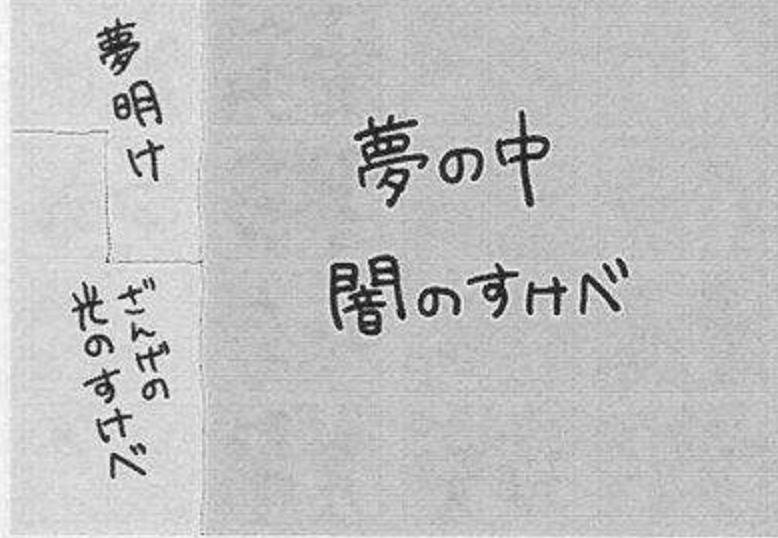 夢の中
闇のすけべ
夢明け
ざんげの
光のすけべ